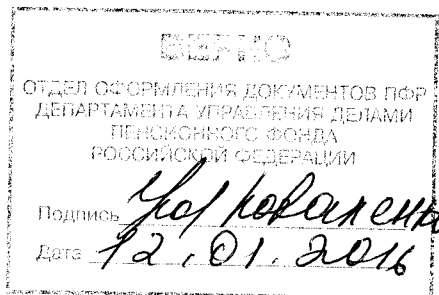 ВЕРНО
ОТДЕЛ ОФОРМЛЕНИЯ ДОКУМЕНТОВ ПФР
ДЕПАРТАМЕНТА УПРАВЛЕНИЯ ДЕЛАМИ
ПЕНСИОННОГО ФОНДА
РОССИЙСКОЙ ФЕДЕРАЦИИ
Подпись
Дата 12.01.2016